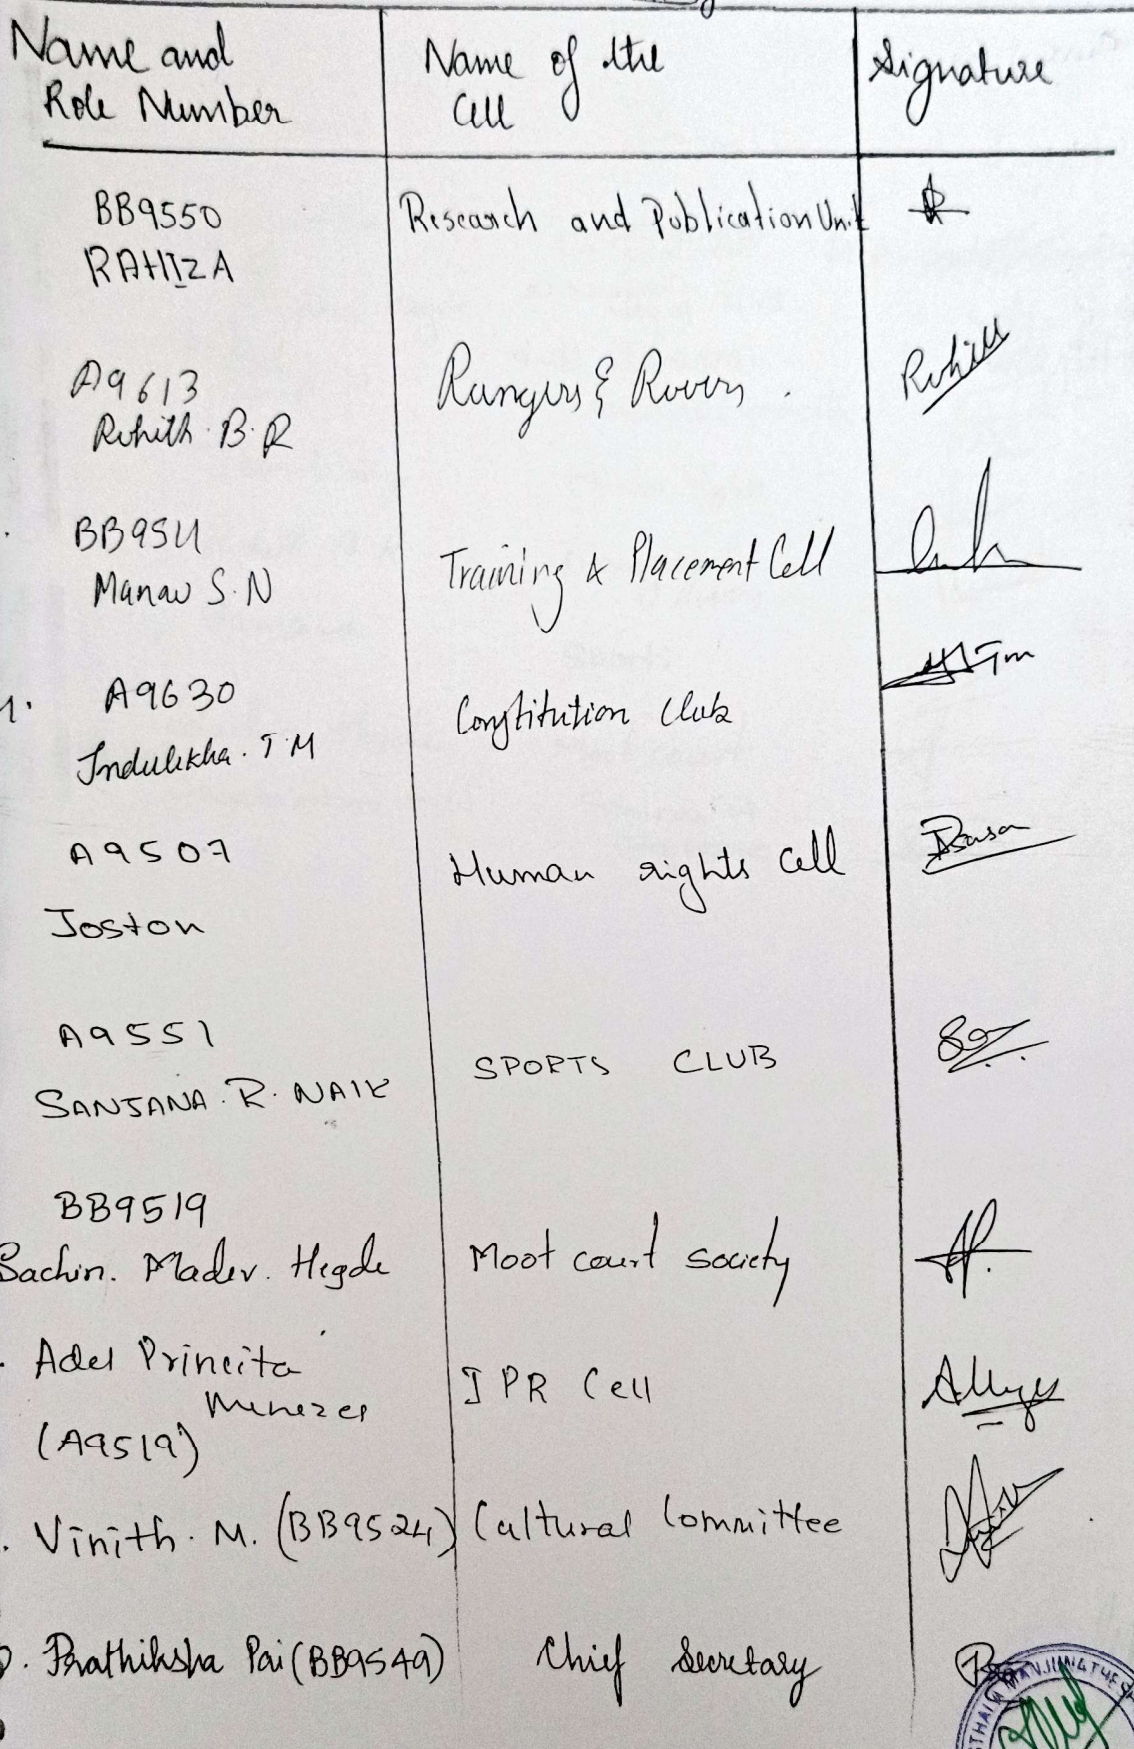 Name and
Role Number
Name of the
Cell
Signature
BB9550
RAHIZA
Research and Publication Unit
A9613
Rohith. B. R
Rangers & Rovers.
Rohith
BB9511
Manav S. N
Training & Placement Cell
4. A9630
Indulekha. T. M
Constitution Club
A9507
Joston
Human rights Cell
A9551
SANJANA. R. NAIK
SPORTS CLUB
BB9519
Sachin. Madev. Hegde
Moot court society
Adel Princita
Menezes
(A9519)
IPR Cell
Vinith. M. (BB9524)
Cultural Committee
Prathiksha Pai (BB9549)
Chief Secretary